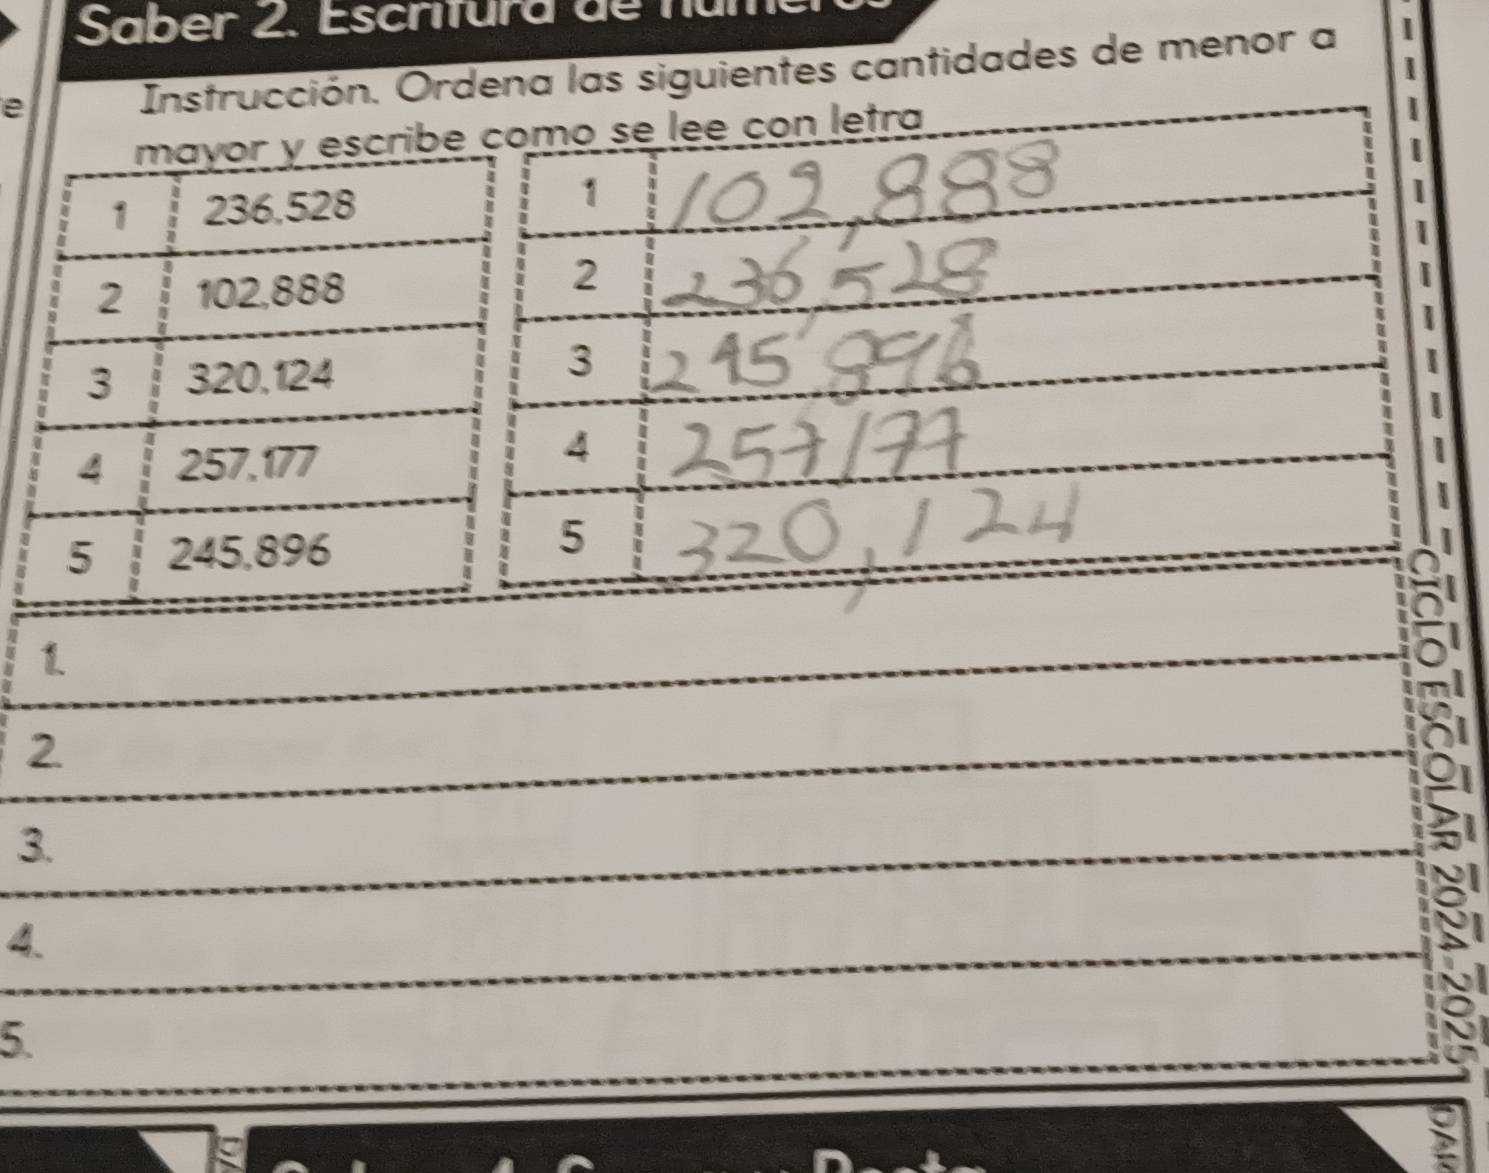 Saber 2. Escritura de números
Instrucción. Ordena las siguientes cantidades de menor a
mayor y escribe como se lee con letra
1 236,528
2 102,888
3 320,124
4 257,177
5 245,896
1 102,888
2 236,528
3 245,896
4 257177
5 320,124
1.
2.
3.
4.
5.
CICLO ESCOLAR 2024-2025